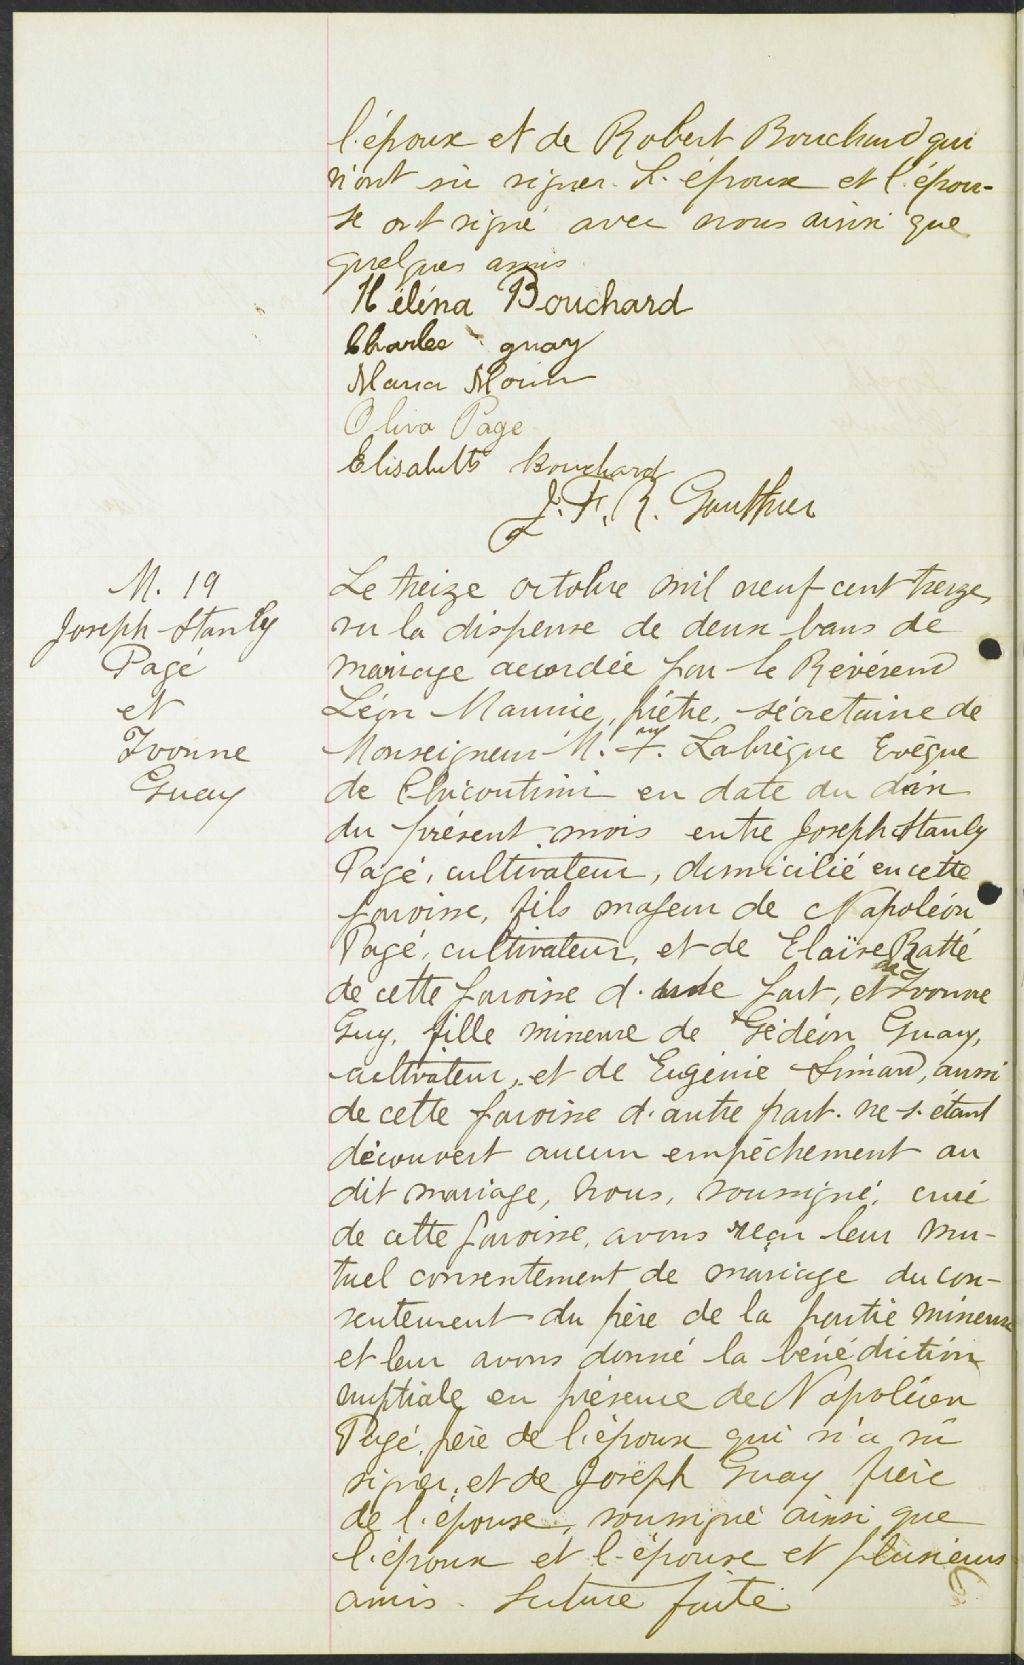 l'époux et de Robert Bouchard qui
n'ont su signer. L'époux et l'épou-
se ont signé avec nous ainsi que
quelques amis.
Héléna Bouchard
Charles guay
Maria Morin
Oliva Page
Elisabeth Bouchard
J. F. R. Gauthier
M. 19
Joseph-Stanly
Pagé
et
Yvonne
Guay
Le treize octobre mil neuf cent treize,
vu la dispense de deux bans de
mariage accordée par le Révérend
Léon Maurice, prêtre, sécretaire de
Monseigneur M. T. Labrèque Evêque
de Chicoutimi en date du dix
du présent mois entre Joseph Stanly
Pagé, cultivateur, domicilié en cette
paroisse, fils majeur de Napoléon
Pagé, cultivateur, et de Elaïse Ratté
de cette paroisse d'une part, et de Yvonne
Guy, fille mineure de Gédéon Guay,
cultivateur, et de Eugénie Simard, aussi
de cette paroisse d'autre part. ne s'étant
découvert aucun empêchement au
dit mariage, Nous, soussigné, curé
de cette paroisse, avons reçu leur mu-
tuel consentement de mariage du con-
sentement du père de la partie mineure
et leur avons donné la bénédiction
nuptiale en présence de Napoléon
Pagé, père de l'époux qui n'a su
signer, et de Joseph Guay frère
de l'épouse, soussigné ainsi que
l'époux et l'épouse et plusieurs
amis. Lecture faite